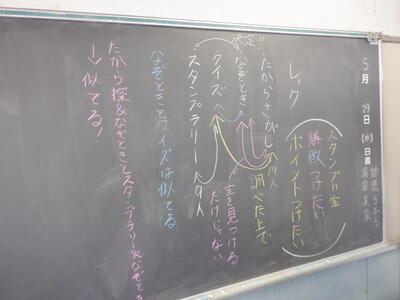 5月29日(水)日直
スタンプ宝
勝敗つけたい
ポイントつけたい
レック
決定!!
・たからさがし 9人
調べた上で
・なぞとき
宝を見つける
だけじゃない
・クイズ
・スタンプラリー 9人
なぞときとクイズは似てる
たから探&なぞときとスタンプラリー&なぞとき
→似てる!